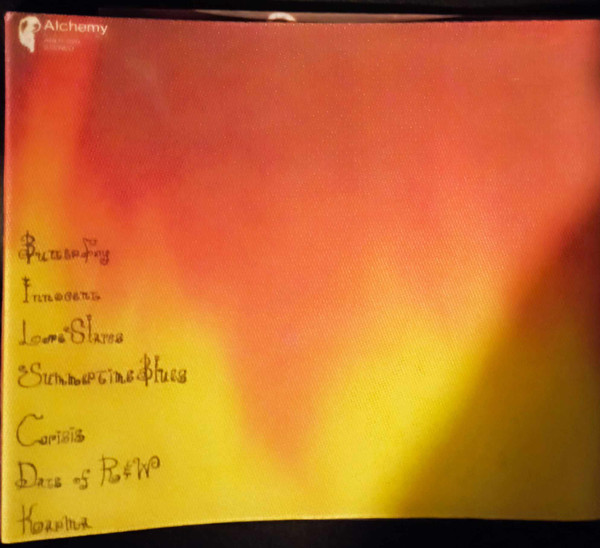 Alchemy
Butterfly
Innocent
Love Slaves
Summertime Blues
Crisis
of R&W
Karma